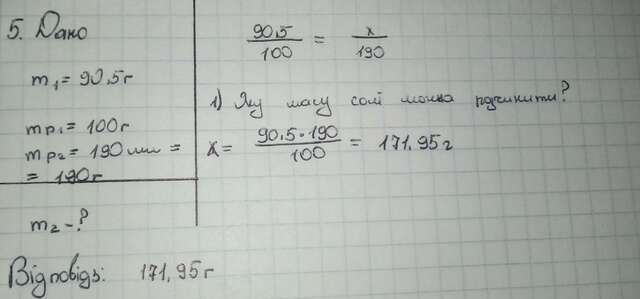 5. Дано
m₁ = 90,5г
mp₁ = 100г
mp₂ = 190 мл =
= 190г
m₂ - ?
90,5/100 = x/190
1) Яку масу солі можна розчинити?
x = 90,5 · 190/100 = 171,95г
Відповідь: 171,95г